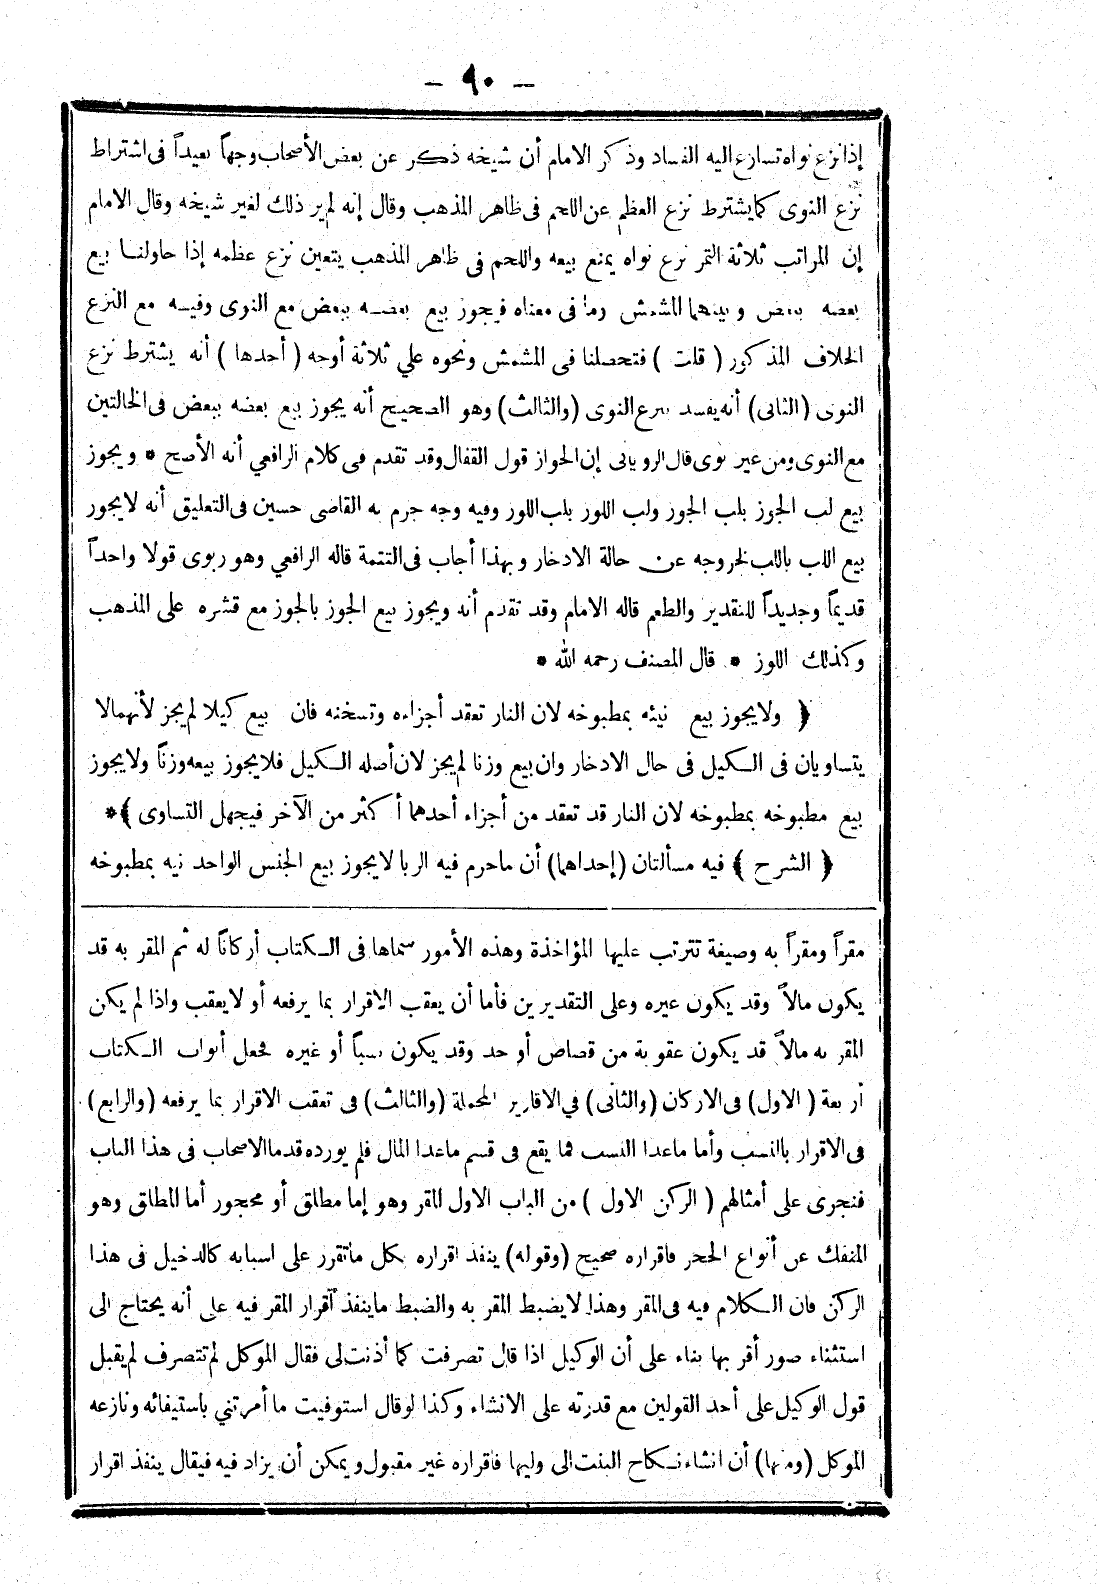 — ٩٠ —
إذا نزع نواه تسارع اليه الفساد وذكر الامام أن شيخه ذكر عن بعض الأصحاب وجهاً بعيداً فى اشتراط
نزع النوى كما يشترط نزع العظم عن اللحم فى ظاهر المذهب وقال إنه لم ير ذلك لغير شيخه وقال الامام
إن المراتب ثلاثة التمر نزع نواه يمنع بيعه واللحم فى ظاهر المذهب يتعين نزع عظمه إذا حاولنا بيع
بعضه ببعض وبينهما المشمش وما فى معناه فيجوز بيع بعضه ببعض مع النوى وفيه مع النزع
الخلاف المذكور ( قلت ) فتحصلنا فى المشمش ونحوه علي ثلاثة أوجه ( أحدها ) أنه يشترط نزع
النوى (الثانى) أنه يفسد بنزع النوى (والثالث) وهو الصحيح أنه يجوز بيع بعضه ببعض فى الحالتين
مع النوى ومن غير نوى قال الرويانى إن الجواز قول القفال وقد تقدم فى كلام الرافعي أنه الأصح * ويجوز
بيع لب الجوز بلب الجوز ولب اللوز بلب اللوز وفيه وجه جزم به القاضى حسين فى التعليق أنه لا يجوز
بيع اللب باللب لخروجه عن حالة الادخار وبهذا أجاب فى التتمة قاله الرافعي وهو ربوى قولا واحداً
قديماً وجديداً للتقدير والطعم قاله الامام وقد تقدم أنه ويجوز بيع الجوز بالجوز مع قشره على المذهب
وكذلك اللوز * قال المصنف رحمه الله *
﴿ ولا يجوز بيع نيئه بمطبوخه لان النار تعقد أجزاءه وتسخنه فان بيع كيلا لم يجز لأنهما لا
يتساويان فى الكيل فى حال الادخار وان بيع وزنا لم يجز لان أصله الكيل فلا يجوز بيعه وزناً ولا يجوز
بيع مطبوخه بمطبوخه لان النار قد تعقد من أجزاء أحدهما أكثر من الآخر فيجهل التساوى ﴾ *
﴿ الشرح ﴾ فيه مسألتان (إحداهما) أن ما حرم فيه الربا لا يجوز بيع الجنس الواحد نيه بمطبوخه
مقراً ومقراً به وصيغة تترتب عليها المؤاخذة وهذه الأمور سماها فى الكتاب أركاناً له ثم المقر به قد
يكون مالاً وقد يكون غيره وعلى التقديرين فأما أن يعقب الاقرار بما يرفعه أو لا يعقب واذا لم يكن
المقر به مالاً قد يكون عقوبة من قصاص أو حد وقد يكون نسباً أو غيره فجعل أبواب الكتاب
أربعة ( الاول) فى الاركان (والثانى) في الاقارير المجملة (والثالث) فى تعقب الاقرار بما يرفعه (والرابع)
فى الاقرار بالنسب وأما ماعدا النسب مما يقع فى قسم ماعدا المال فلم يورده قدما الاصحاب فى هذا الباب
فنجرى على أمثالهم ( الركن الاول ) من الباب الاول المقر وهو إما مطلق أو محجور أما المطلق وهو
المنفك عن أنواع الحجر فاقراره صحيح (وقوله) ينفذ اقراره بكل ما تقرر على اسبابه كالدخيل فى هذا
الركن فان الكلام فيه فى المقر وهذا لا يضبط المقر به والضبط ما ينفذ اقرار المقر فيه على أنه يحتاج الى
استثناء صور أقر بها بناء على أن الوكيل اذا قال تصرفت كما أذنت لى فقال الموكل لم تتصرف لم يقبل
قول الوكيل على أحد القولين مع قدرته على الانشاء وكذا لو قال استوفيت ما أمرتني باستيفائه ونازعه
الموكل (ومنها) أن انشاء نكاح البنت الى وليها فاقراره غير مقبول ويمكن أن يزاد فيه فيقال ينفذ اقرار